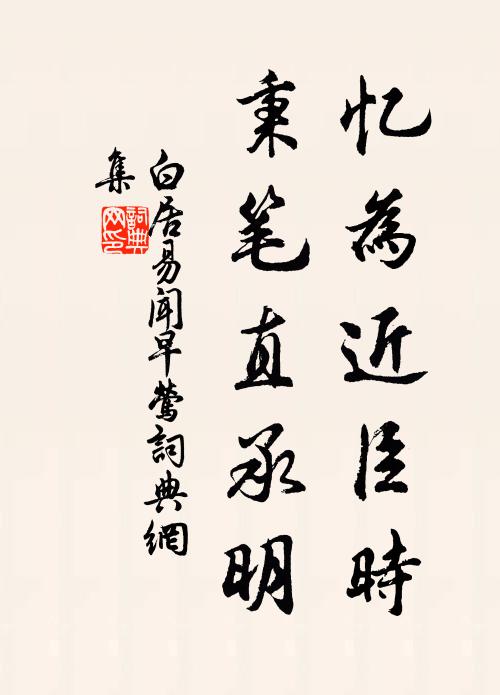 忆為近臣時
秉笔直承明
白居易聞早鶯詞典網
集
詞典网印